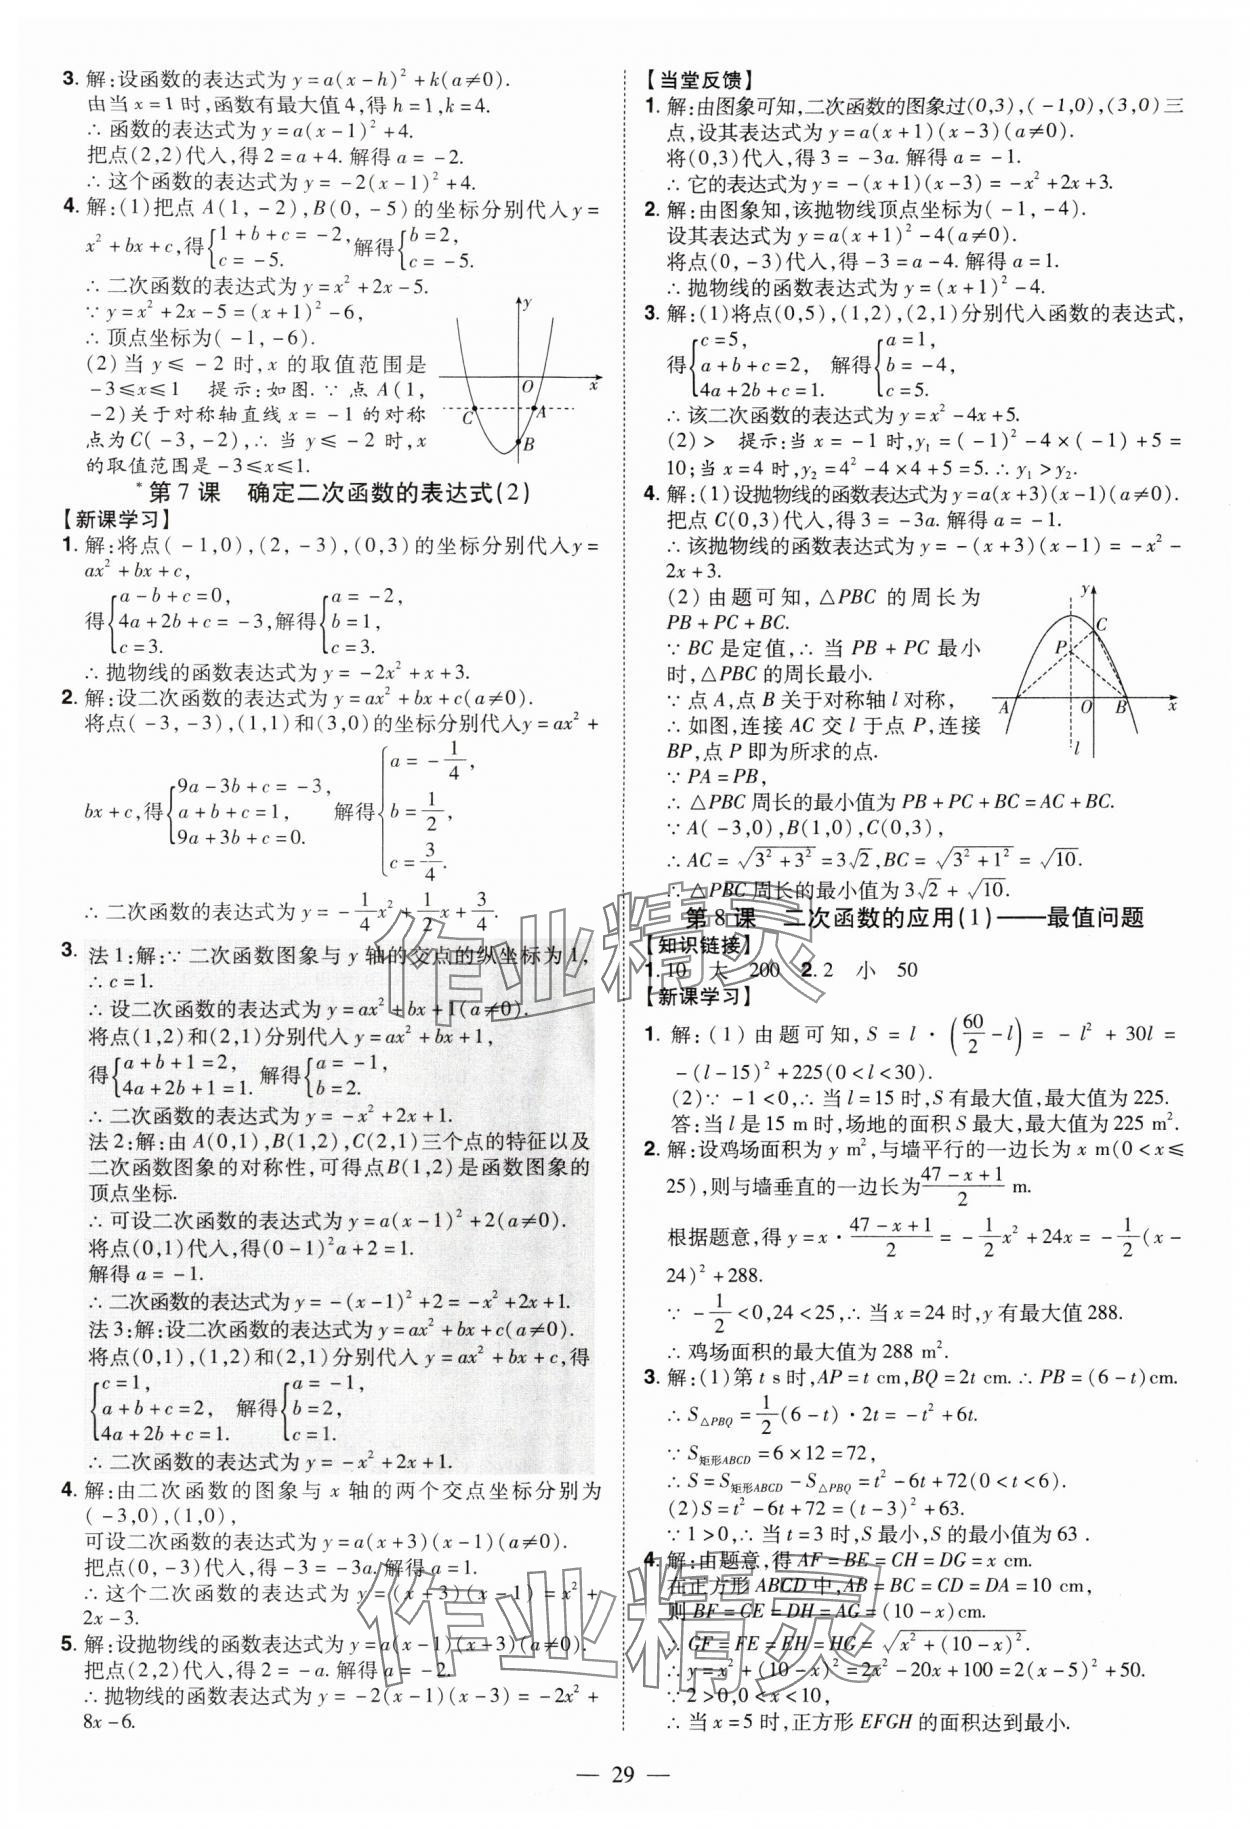 3. 解:设函数的表达式为 y=a(x-h)²+k(a≠0).
由当 x=1 时,函数有最大值 4,得 h=1,k=4.
∴ 函数的表达式为 y=a(x-1)²+4.
把点(2,2)代入,得 2=a+4. 解得 a=-2.
∴ 这个函数的表达式为 y=-2(x-1)²+4.
4. 解:(1)把点 A(1,-2),B(0,-5)的坐标分别代入 y=
x²+bx+c,得{1+b+c=-2, c=-5. 解得{b=2, c=-5.
∴ 二次函数的表达式为 y=x²+2x-5.
∵ y=x²+2x-5=(x+1)²-6,
∴ 顶点坐标为(-1,-6).
(2)当 y≤-2 时,x 的取值范围是
-3≤x≤1 提示:如图.∵ 点 A(1,
-2)关于对称轴直线 x=-1 的对称
点为 C(-3,-2),∴ 当 y≤-2 时,x
的取值范围是 -3≤x≤1.
y
O
x
C
A
B
*第 7 课 确定二次函数的表达式(2)
【新课学习】
1. 解:将点(-1,0),(2,-3),(0,3)的坐标分别代入 y=
ax²+bx+c,
得{a-b+c=0, 4a+2b+c=-3, c=3. 解得{a=-2, b=1, c=3.
∴ 抛物线的函数表达式为 y=-2x²+x+3.
2. 解:设二次函数的表达式为 y=ax²+bx+c(a≠0).
将点(-3,-3),(1,1)和(3,0)的坐标分别代入 y=ax²+
bx+c,得{9a-3b+c=-3, a+b+c=1, 9a+3b+c=0. 解得{a=-1/4, b=1/2, c=3/4.
∴ 二次函数的表达式为 y=-1/4x²+1/2x+3/4.
3. 法 1:解:∵ 二次函数图象与 y 轴的交点的纵坐标为 1,
∴ c=1.
∴ 设二次函数的表达式为 y=ax²+bx+1(a≠0).
将点(1,2)和(2,1)分别代入 y=ax²+bx+1,
得{a+b+1=2, 4a+2b+1=1. 解得{a=-1, b=2.
∴ 二次函数的表达式为 y=-x²+2x+1.
法 2:解:由 A(0,1),B(1,2),C(2,1)三个点的特征以及
二次函数图象的对称性,可得点 B(1,2)是函数图象的
顶点坐标.
∴ 可设二次函数的表达式为 y=a(x-1)²+2(a≠0).
将点(0,1)代入,得(0-1)²a+2=1.
解得 a=-1.
∴ 二次函数的表达式为 y=-(x-1)²+2=-x²+2x+1.
法 3:解:设二次函数的表达式为 y=ax²+bx+c(a≠0).
将点(0,1),(1,2)和(2,1)分别代入 y=ax²+bx+c,得
{c=1, a+b+c=2, 4a+2b+c=1. 解得{a=-1, b=2, c=1.
∴ 二次函数的表达式为 y=-x²+2x+1.
4. 解:由二次函数的图象与 x 轴的两个交点坐标分别为
(-3,0),(1,0),
可设二次函数的表达式为 y=a(x+3)(x-1)(a≠0).
把点(0,-3)代入,得 -3=-3a. 解得 a=1.
∴ 这个二次函数的表达式为 y=(x+3)(x-1)=x²+
2x-3.
5. 解:设抛物线的函数表达式为 y=a(x-1)(x-3)(a≠0).
把点(2,2)代入,得 2=-a. 解得 a=-2.
∴ 抛物线的函数表达式为 y=-2(x-1)(x-3)=-2x²+
8x-6.
【当堂反馈】
1. 解:由图象可知,二次函数的图象过(0,3),(-1,0),(3,0)三
点,设其表达式为 y=a(x+1)(x-3)(a≠0).
将(0,3)代入,得 3=-3a. 解得 a=-1.
∴ 它的表达式为 y=-(x+1)(x-3)=-x²+2x+3.
2. 解:由图象知,该抛物线顶点坐标为(-1,-4).
设其表达式为 y=a(x+1)²-4(a≠0).
将点(0,-3)代入,得 -3=a-4. 解得 a=1.
∴ 抛物线的函数表达式为 y=(x+1)²-4.
3. 解:(1)将点(0,5),(1,2),(2,1)分别代入函数的表达式,
得{c=5, a+b+c=2, 4a+2b+c=1. 解得{a=1, b=-4, c=5.
∴ 该二次函数的表达式为 y=x²-4x+5.
(2)> 提示:当 x=-1 时,y₁=(-1)²-4×(-1)+5=
10;当 x=4 时,y₂=4²-4×4+5=5.∴ y₁>y₂.
4. 解:(1)设抛物线的函数表达式为 y=a(x+3)(x-1)(a≠0).
把点 C(0,3)代入,得 3=-3a. 解得 a=-1.
∴ 该抛物线的函数表达式为 y=-(x+3)(x-1)=-x²-
2x+3.
(2)由题可知,△PBC 的周长为
PB+PC+BC.
∵ BC 是定值,∴ 当 PB+PC 最小
时,△PBC 的周长最小.
∵ 点 A,点 B 关于对称轴 l 对称,
∴ 如图,连接 AC 交 l 于点 P,连接
BP,点 P 即为所求的点.
∵ PA=PB,
∴ △PBC 周长的最小值为 PB+PC+BC=AC+BC.
∵ A(-3,0),B(1,0),C(0,3),
∴ AC=√(3²+3²)=3√2,BC=√(3²+1²)=√10.
∴ △PBC 周长的最小值为 3√2+√10.
y
C
P
A
O
B
x
l
第 8 课 二次函数的应用(1)——最值问题
【知识链接】
1. 10 大 200 2. 2 小 50
【新课学习】
1. 解:(1)由题可知,S=l·(60/2-l)=-l²+30l=
-(l-15)²+225(0<l<30).
(2)∵ -1<0,∴ 当 l=15 时,S 有最大值,最大值为 225.
答:当 l 是 15 m 时,场地的面积 S 最大,最大值为 225 m².
2. 解:设鸡场面积为 y m²,与墙平行的一边长为 x m(0<x≤
25),则与墙垂直的一边长为(47-x+1)/2 m.
根据题意,得 y=x·(47-x+1)/2=-1/2x²+24x=-1/2(x-
24)²+288.
∵ -1/2<0,24<25,∴ 当 x=24 时,y 有最大值 288.
∴ 鸡场面积的最大值为 288 m².
3. 解:(1)第 t s 时,AP=t cm,BQ=2t cm.∴ PB=(6-t)cm.
∴ S△PBQ=1/2(6-t)·2t=-t²+6t.
∵ S矩形ABCD=6×12=72,
∴ S=S矩形ABCD-S△PBQ=t²-6t+72(0<t<6).
(2)S=t²-6t+72=(t-3)²+63.
∵ 1>0,∴ 当 t=3 时,S 最小,S 的最小值为 63.
4. 解:由题意,得 AF=BE=CH=DG=x cm.
在正方形 ABCD 中,AB=BC=CD=DA=10 cm,
则 BF=CE=DH=AG=(10-x)cm.
∴ GF=FE=EH=HG=√(x²+(10-x)²).
∴ y=x²+(10-x)²=2x²-20x+100=2(x-5)²+50.
∵ 2>0,0<x<10,
∴ 当 x=5 时,正方形 EFGH 的面积达到最小.
— 29 —
作业精灵
作业精灵